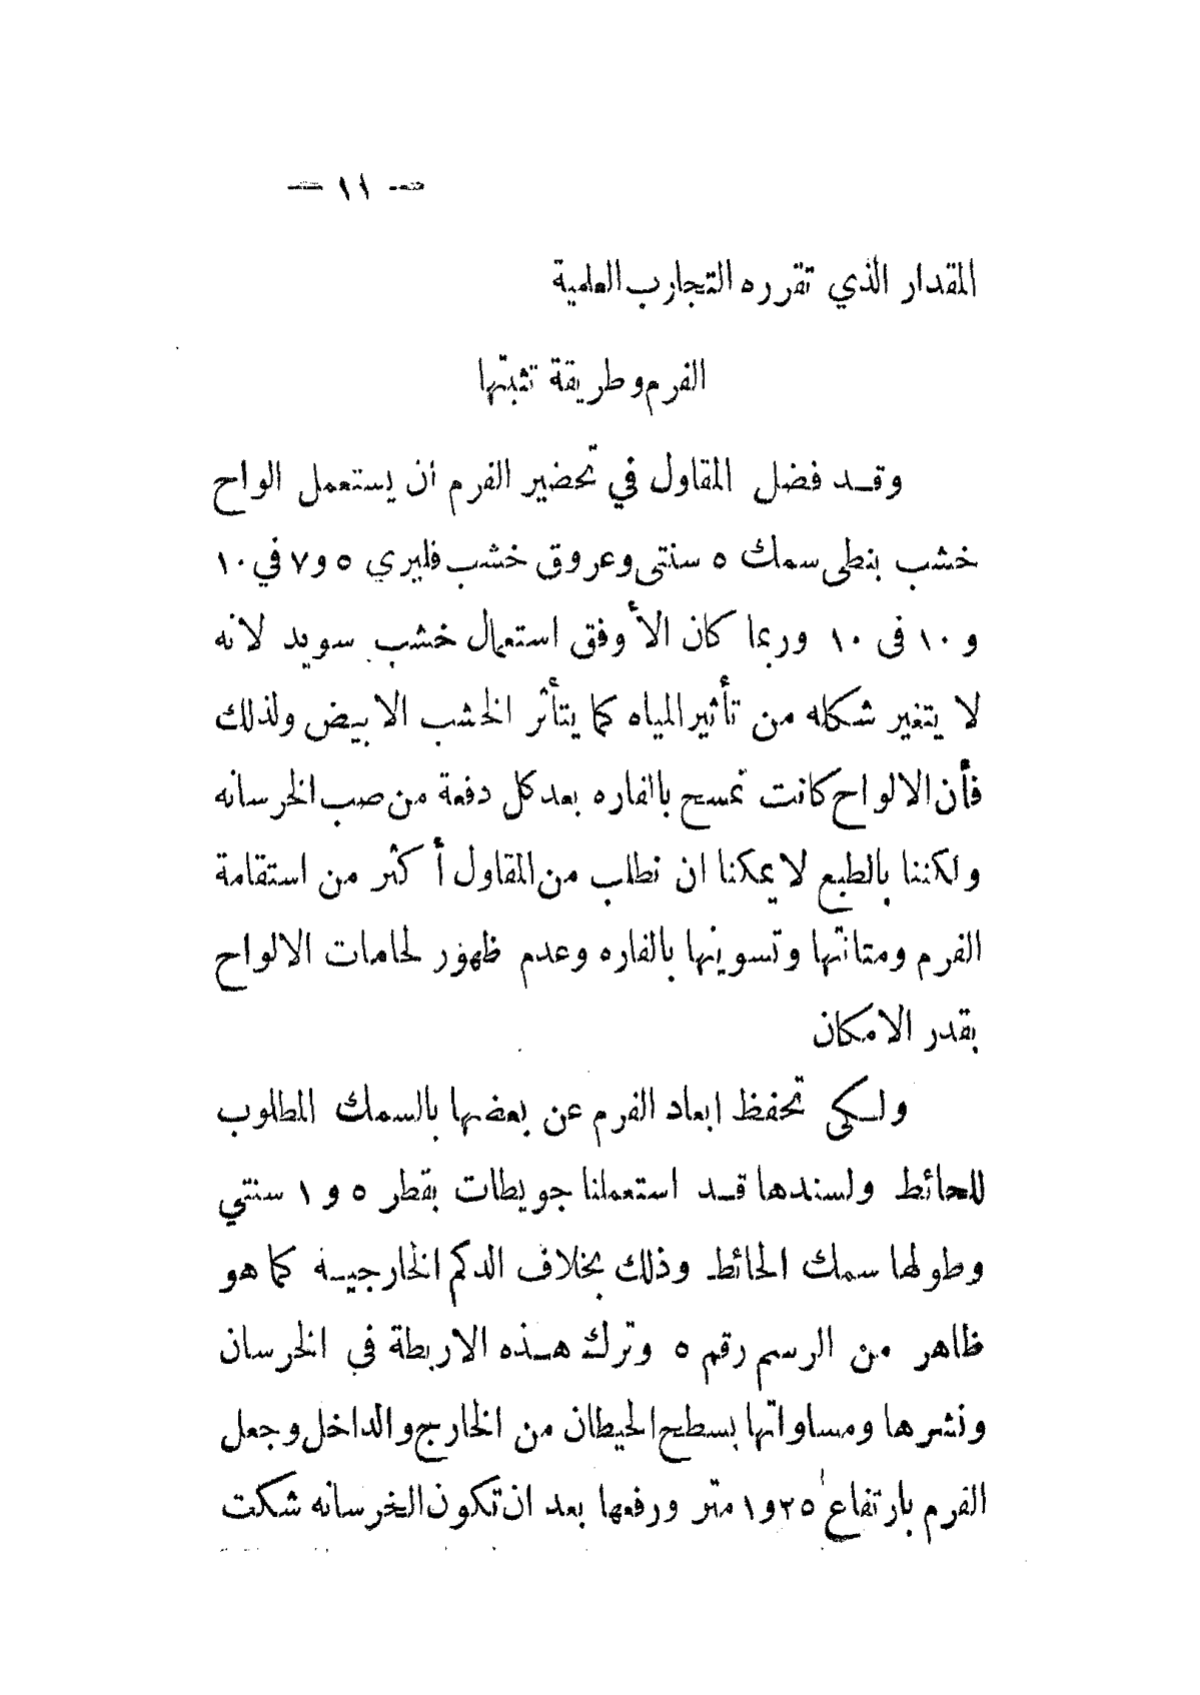 — ١١ —
المقدار الذي تقرره التجارب العلمية
الفرم وطريقة تثبتها
وقد فضل المقاول في تحضير الفرم أن يستعمل الواح
خشب بنطى سمك ٥ سنتى وعروق خشب فليري ٥ و٧ في ١٠
و ١٠ فى ١٠ وربما كان الأوفق استعمال خشب سويد لانه
لا يتغير شكله من تأثير المياه كما يتأثر الخشب الابيض ولذلك
فأن الالواح كانت تمسح بالفاره بعد كل دفعة من صب الخرسانه
ولكننا بالطبع لا يمكنا ان نطلب من المقاول أكثر من استقامة
الفرم ومتانتها وتسويتها بالفاره وعدم ظهور لحامات الالواح
بقدر الامكان
ولكى تحفظ ابعاد الفرم عن بعضها بالسمك المطلوب
للحائط ولسندها قد استعملنا جويطات بقطر ٥ و ١ سنتي
وطولها سمك الحائط وذلك بخلاف الدكم الخارجية كما هو
ظاهر من الرسم رقم ٥ وترك هذه الاربطة في الخرسان
ونشرها ومساواتها بسطح الحيطان من الخارج والداخل وجعل
الفرم بارتفاع ٢٥و١ متر ورفعها بعد ان تكون الخرسانه شكت